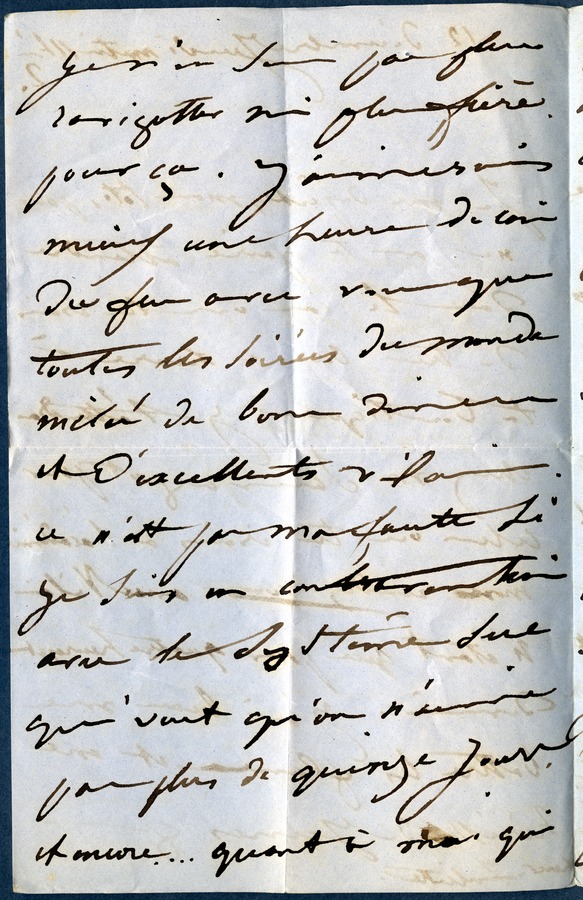 je n'en suis pas plus
ravigotter ni plus fière
pour ça. j'aimerais
mieux une heure de coin
du feu avec vous que
toutes les soirées du monde
mêlé de bons dîners
et d'excellents
ce n'est pas ma faute si
je suis en contravention
avec le système Sue
qui veut qu'on n'aime
pas plus de quinze jours
et encore... quant à moi qui